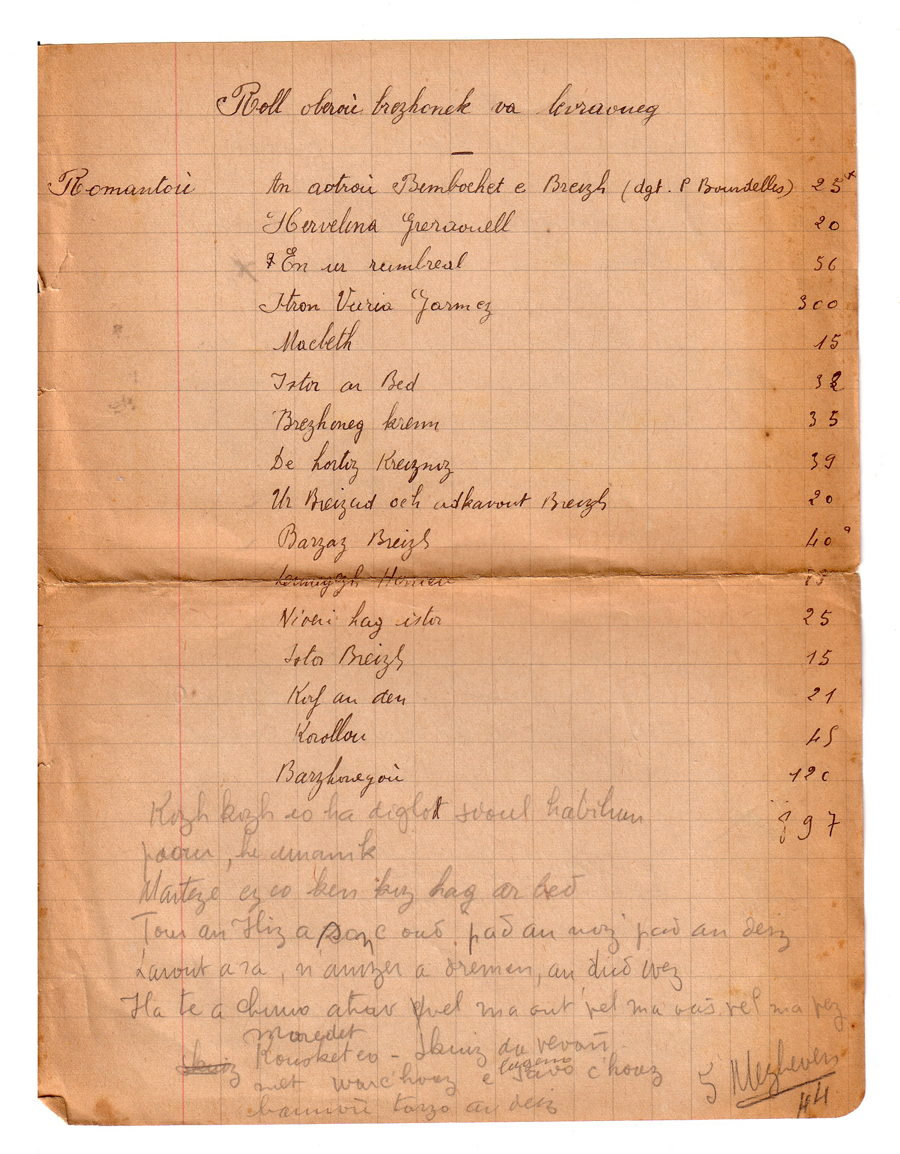 Roll oberoù brezhonek va levraoueg
Romantoù An aotroù Bimbochet e Breizh (dgt. P Bourdelles) 25
Hervelina Geraouell 20
En ur rambreal 56
Itron Varia Garmez 300
Macbeth 15
Istor ar Bed 38
Brezhoneg krenn 35
De hortoz Kreiznoz 39
Ur Breizad oc'h adkavout Breizh 20
Barzaz Breizh 40
Niveri hag istor 25
Istor Breizh 15
Korf an den 21
Korollou 45
Barzhonegoù 120
Kozh kozh eo ha diglot 897
paour,
Marteze ez eo ken koz hag ar bed
Tour an Iliz a sav c'oud, pad an noz pad an deiz
Lavout a ra, n'amzer a dremen, an dud ivez
Ha te a chomo atav vel ma out vel ma oas vel ma vez
maredet
Kousket eo - Skuiz da vevañ.
net warc'hoaz e savo c'hoaz
bannoù tarzo an deiz
5 Mezheven
44